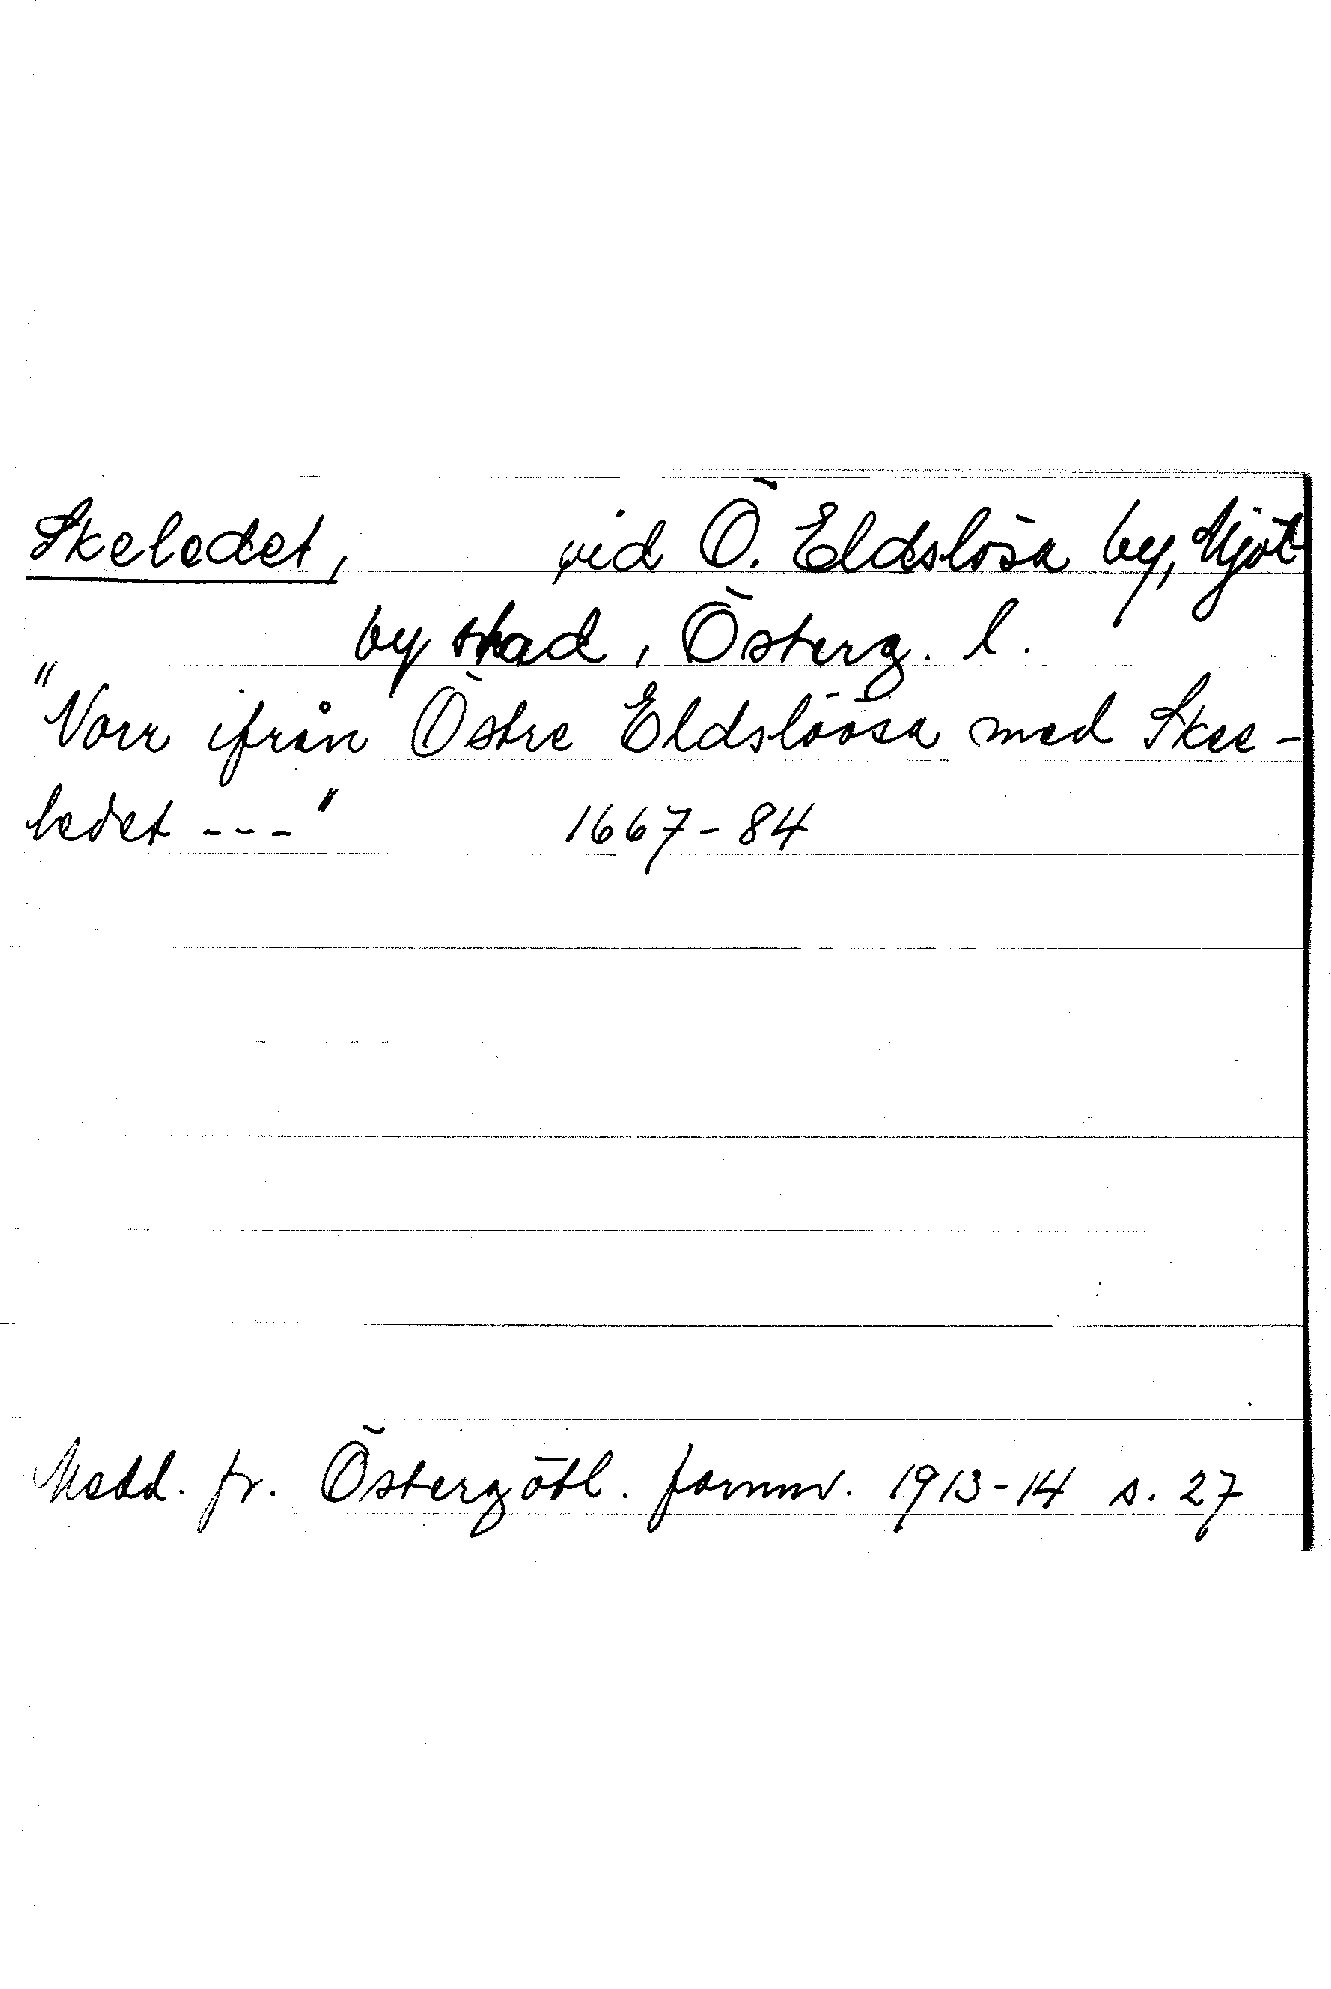 Skeledet, vid Ö. Eldslösa by, Mjöl-
by stad, Österg. l.
"Norr ifrån Östre Eldslöösa med Skee-
ledet --- " 1667-84
Medd. fr. Östergötl. fornmv. 1913-14 s. 27